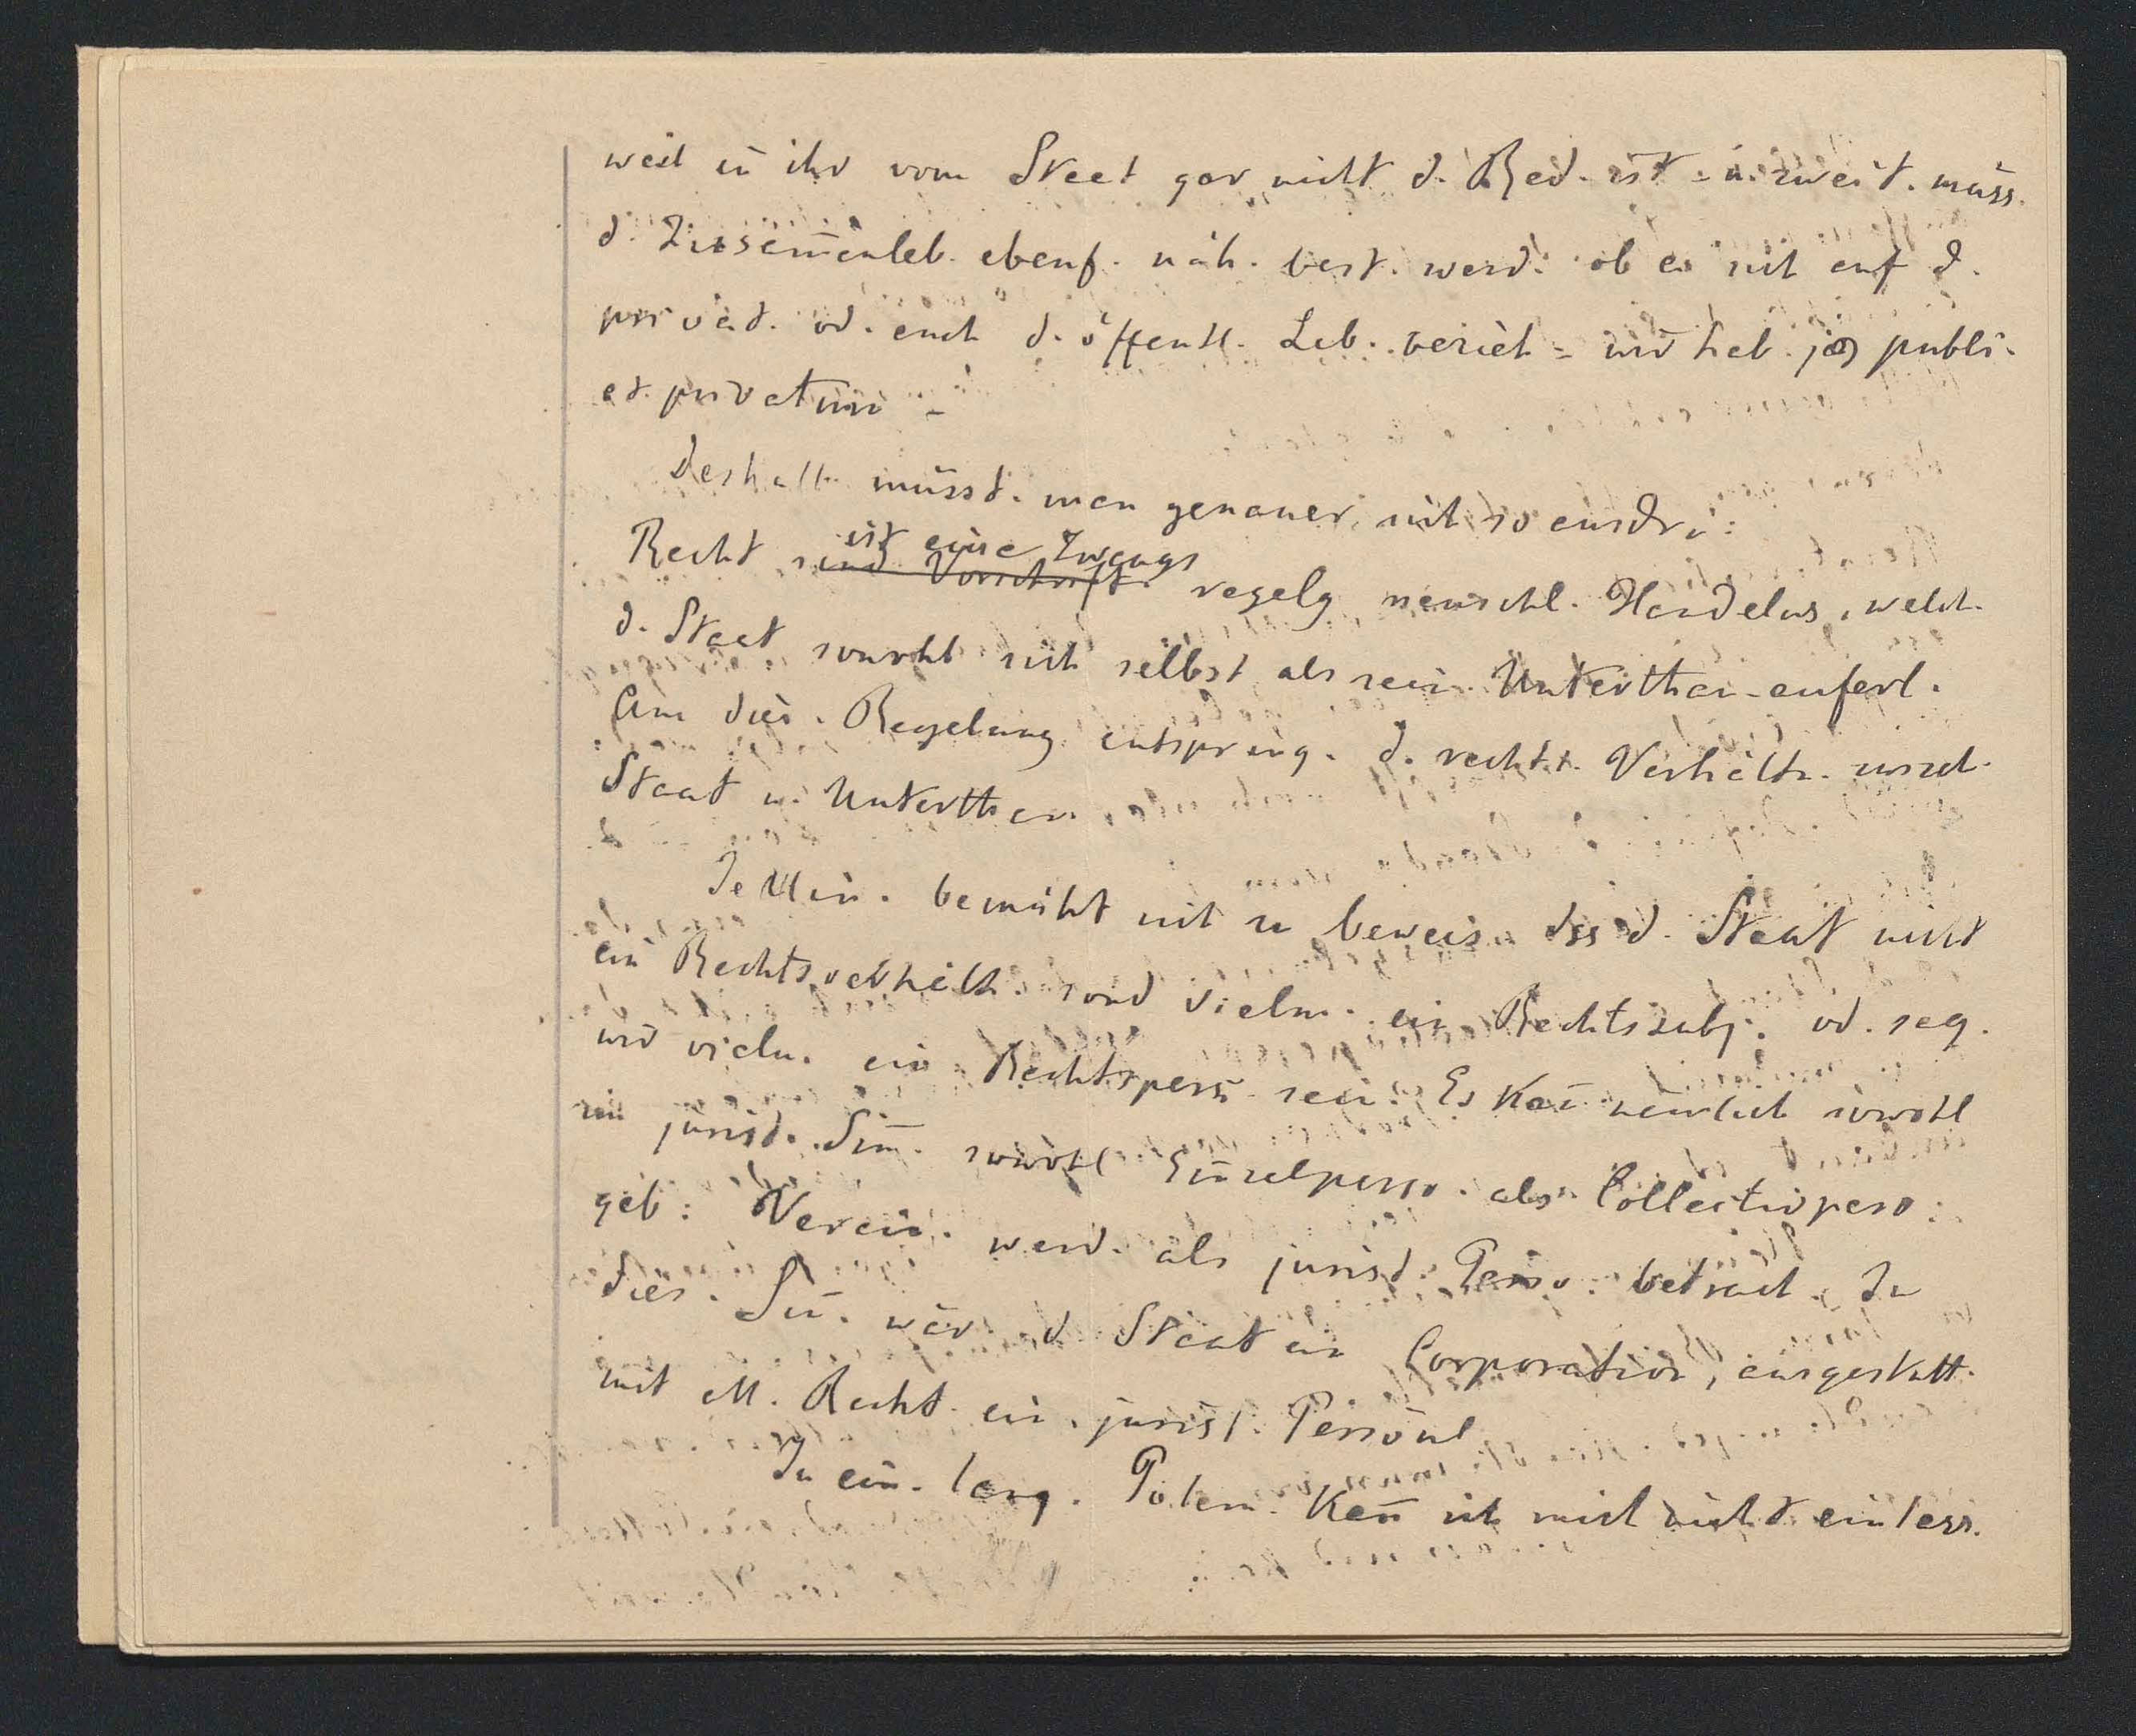 weil in ihr vom Staat gar nicht d. Red. ist - u. zweit. müss.
d. Zusam̄enleb. ebenf. näh. best. werd. ob es sich auf d.
privat. od. auch d. öffentl. Leb. bezieh - wir hab. jus publi.
et. privatum -
Deshalb müsst. man genauer sich so ausdrü:
ist eine Zwangs
Recht sind Vorschrift. regelg menschl. Handelns, welch.
d. Staat sowohl sich selbst als sein. Unterthan. auferl.
Aus dies. Regelung entspring. d. rechtl. Verhältn. zwisch.
Staat u. Unterthan.
Jellin. bemüht sich zu beweis. dss d. Staat nicht
ein Rechtsverhältn. sond vielm. ein Rechtssubj. od. sag.
wir vielm. ein Rechtspers. sei. Es kan̄ nämlich sowohl
im jurist. Sin̄. sowohl Einzelperso. als Collectivperso.
geb: Verein. werd. als jurist. Perso. betracht. In
dies. Sin̄. wär d. Staat ein Corporation, ausgestatt.
mit all. Recht. ein. jurist. Persönl
In ein. lang. Polem. kan̄ ich mich nicht einlass.